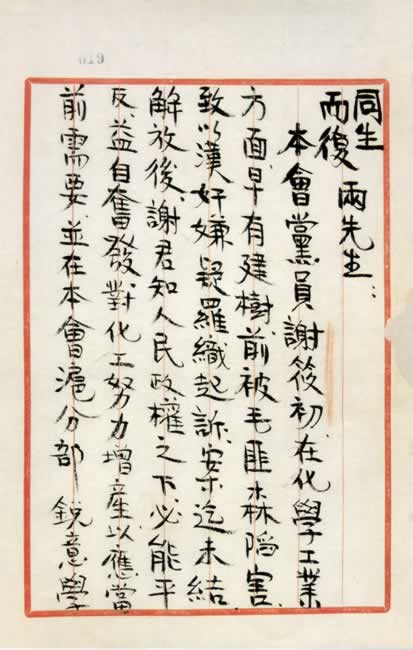 同生
而復 兩先生：
本會黨員謝筱初在化學工業
方面早有建樹前被毛匪森陷害
致以漢奸嫌疑羅織起訴案迄未結
解放後謝君知人民政權之下必能平
反益自奮發對化工努力增產以應當
前需要並在本會滬分部 銳意學